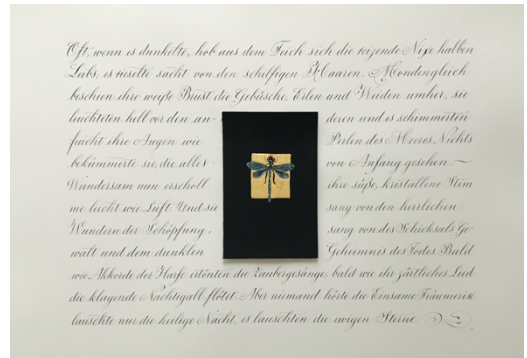 Oft, wenn es dunkelte, hob aus dem Teich sich die reizende Nixe halben
Leibs, es rieselte sacht von den schilfigen Haaren. Mondengleich
beschien ihre weiße Brust die Gebüsche, Erlen und Weiden umher, sie
leuchteten hell vor den an- deren und es schimmerten
feucht ihre Augen wie Perlen des Meeres. Nichts
bekümmerte sie, die alles von Anfang gesehen. ~
Wundersam nun erscholl ihre süße, kristallene Stim
me leicht wie Luft. Und sie sang von den herrlichen
Wundern der Schöpfung, sang von des Schicksals Ge
walt und dem dunklen Geheimnis des Todes. Bald
wie Akkorde der Harfe ertönten die Zaubergesänge, bald wie ihr zärtliches Lied
die klagende Nachtigall flötet. Aber niemand hörte die Einsame Träumerisch
lauschte nur die heilige Nacht, es lauschten die ewigen Sterne.